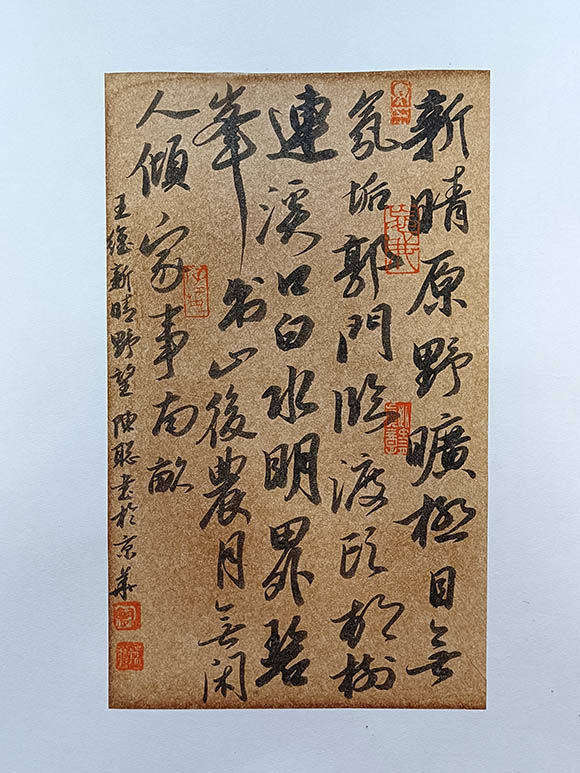 新晴原野曠極目無
氛垢郭門臨渡頭村樹
連溪口白水明田外碧
峯出山後農月無閑
人傾家事南畝
王維新晴野望 陳聰書於京華